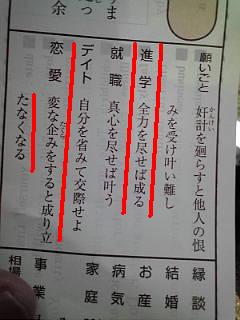 つま
余
願いごと 奸計を廻らすと他人の恨
かんけい
みを受け叶い難し
進学 全力を尽せば成る
就職 真心を尽せば叶う
デイト 自分を省みて交際せよ
恋愛 変な企みをすると成り立
たくら
たなくなる
縁談
結婚
お産
病気
家庭
事業
相場